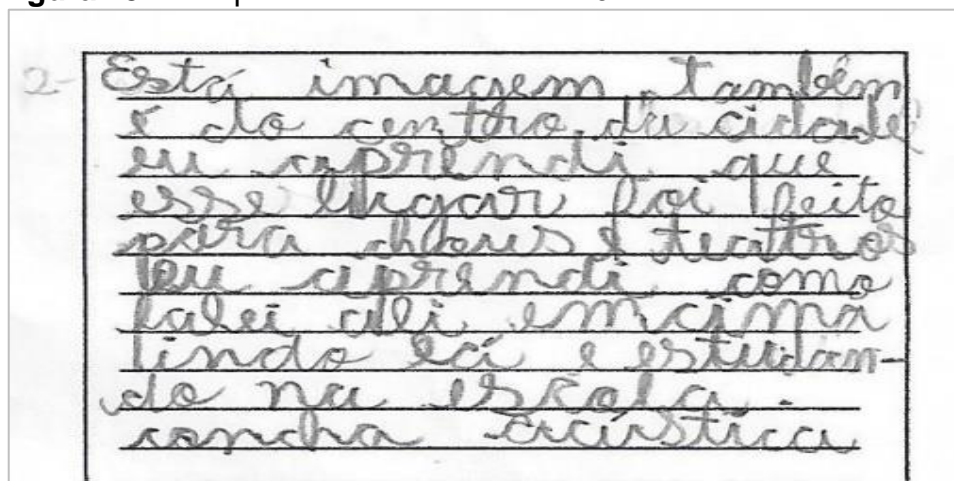 2- Está imagem também
é do centtro da cidade
eu aprendi que
esse lugar foi feito
para shous e teattros
eu aprendi como
falei ali emcima
indo lá e estudan-
do na escola.
concha acústica